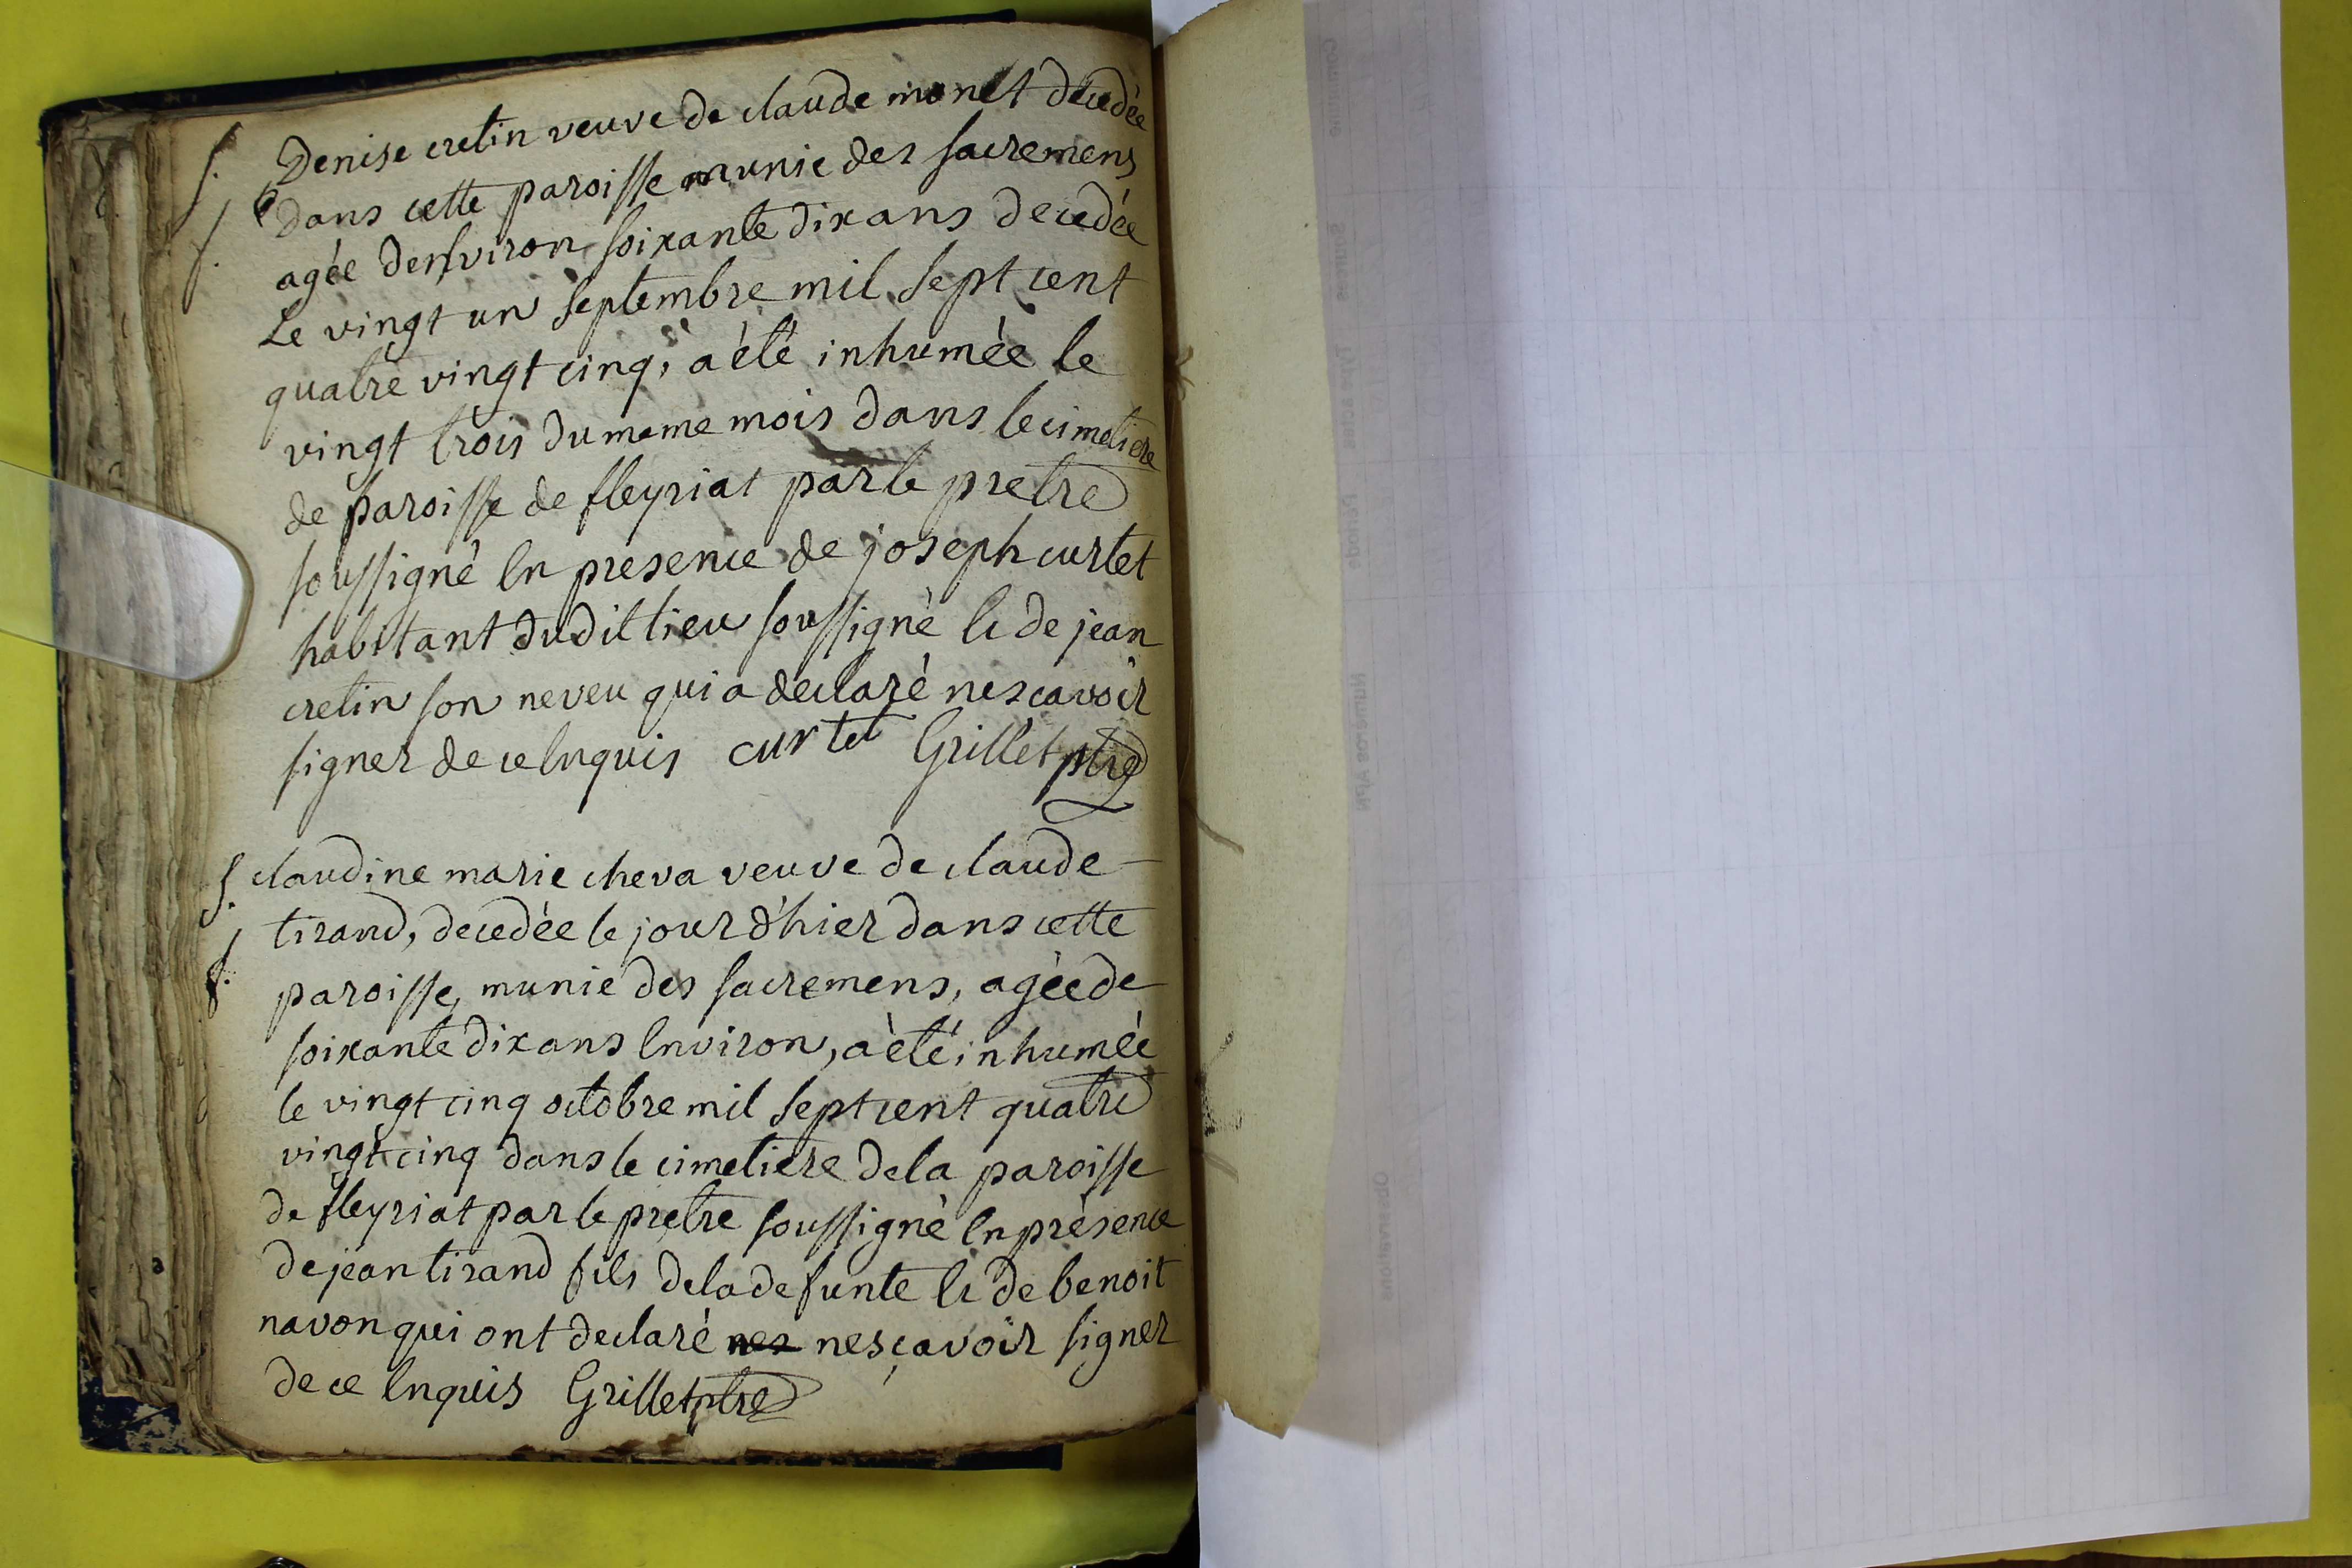 Denise cretin veuve de claude monet décedèe
dans cette paroisse munie des sacremens
agée denviron soixante dix ans decedée
Le vingt un septembre mil sept cent
quatre vingt cinq, a èté inhumèe le
vingt trois du meme mois dans le cimetiere
de paroisse de fleyriat par le pretre
soussigné En presence de joseph curtet
habitant dudit lieu soussigné Et de jean
cretin son neveu qui a declaré ne scavoir
signer de ce Enquis curtet Grillet ptre
claudine marie cheva veuve de claude
tirand, decedée le jour d'hier dans cette
paroisse, munie des sacremens, agèe de
soixante dix ans Environ, a èté inhumèe
le vingt cinq octobre mil sept cent quatre
vingt cinq dans le cimetiere de la paroisse
de fleyriat par le pretre soussignè En prèsence
de jean tirand fils de la defunte Et de benoit
navon qui ont declarè ne sçavoir signer
de ce Enquis Grillet ptre